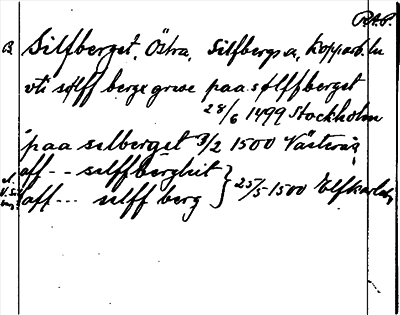 R.A.P.
B Silfberget, Östra, Silfbergs a, Kopparb. ln
vti sølff berge grwe paa sølffberget
28/6 1499 Stockholm
paa selberget 3/2 1500 Västerås
aff - - selffbergheit
aff - - - selff berg } 25/5 1500 Elfkarleby